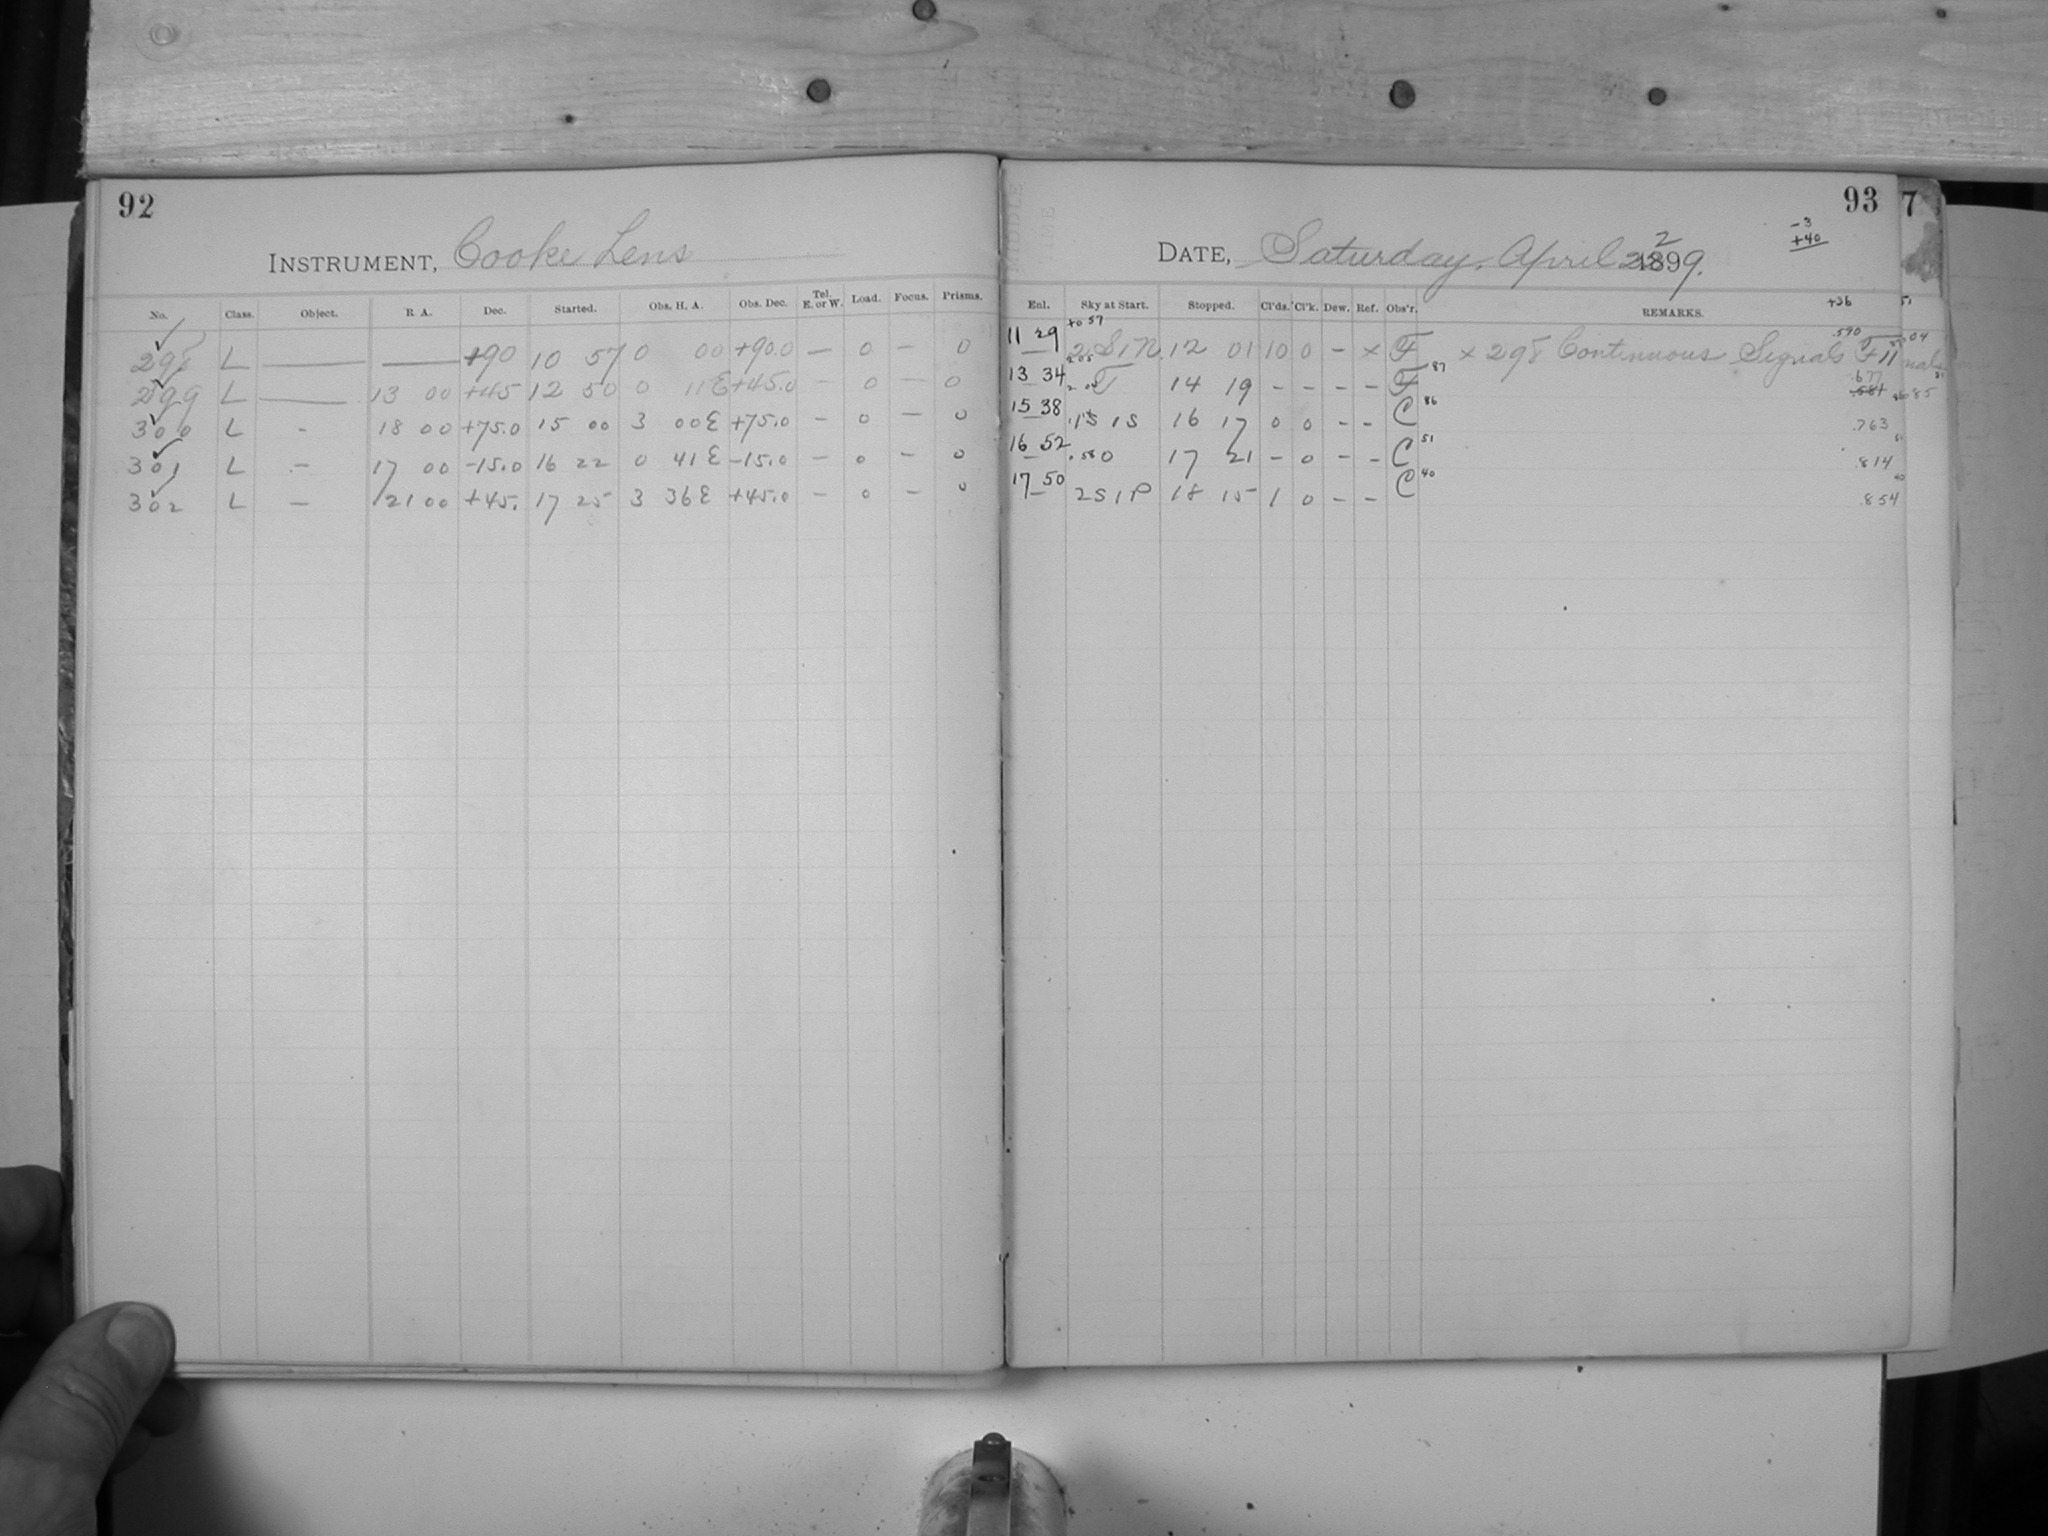 92
INSTRUMENT, Cooke Lens
No. Class. Object. R. A. Dec. Started. Obs. H. A. Obs. Dec. Tel. E. or W. Load. Focus. Prisms.
298 L — — +90 10 57 0 00 +90.0 — 0 — 0
299 L — 13 00 +45 12 50 0 11 E +45.0 — 0 — 0
300 L - 18 00 +75.0 15 00 3 00 E +75.0 — 0 — 0
301 L — 17 00 -15.0 16 22 0 41 E -15.0 — 0 — 0
302 L — 21 00 +45. 17 25 3 36 E +45.0 — 0 — 0
93 7
-3
+40
DATE, Saturday, April 22 1899.
2
+36
Enl. Sky at Start. Stopped. Cl'ds. Cl'k. Dew. Ref. Obs'r. REMARKS.
11 29 2S1N 12 01 10 0 - x F x 298 Continuous Signals F 11 .590 04
13 34 14 19 - - - - F 87 .677 85
15 38 1S 1S 16 17 0 0 - - C 86 .763
16 52 .58 0 17 21 - 0 - - C 51 .814
17 50 2S1P 18 15 1 0 - - C 40 .854